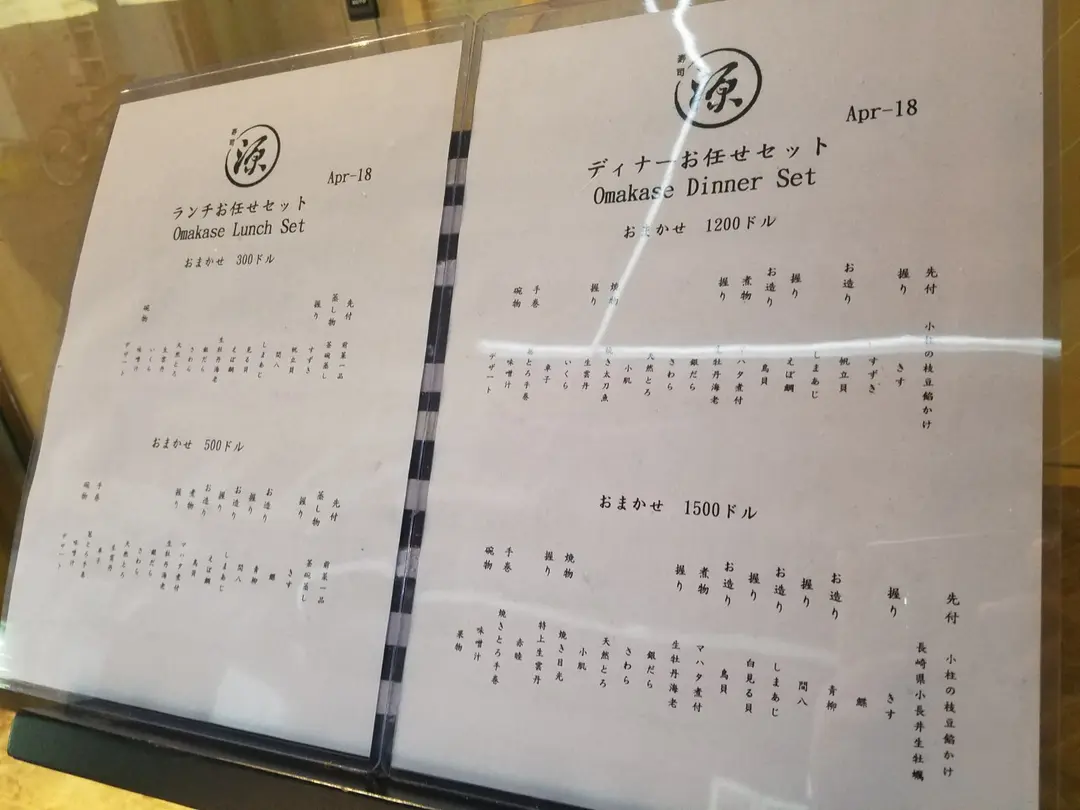 寿司
源
Apr-18
ランチお任せセット
Omakase Lunch Set
おまかせ 300ドル
先付
蒸し物
握り
碗物
前菜一品
茶碗蒸し
すずき
帆立貝
間八
しまあじ
見る貝
えぼ鯛
生牡丹海老
銀だら
さわら
天然とろ
生雲丹
いくら
味噌汁
デザート
おまかせ 500ドル
先付
蒸し物
握り
お造り
握り
お造り
握り
お造り
煮物
握り
手巻
碗物
前菜一品
茶碗蒸し
きす
青柳
間八
しまあじ
えぼ鯛
鳥貝
マハタ煮付
生牡丹海老
銀だら
さわら
天然とろ
生雲丹
とろ手巻
味噌汁
デザート
寿司
源
Apr-18
ディナーお任せセット
Omakase Dinner Set
おまかせ 1200ドル
先付
握り
お造り
握り
お造り
煮物
握り
焼物
握り
手巻
碗物
小柱の枝豆餡かけ
きす
すずき
帆立貝
しまあじ
えぼ鯛
鳥貝
マハタ煮付
生牡丹海老
銀だら
さわら
天然とろ
小肌
焼き太刀魚
生雲丹
いくら
車子
とろ手巻
味噌汁
デザート
おまかせ 1500ドル
先付
握り
お造り
握り
お造り
握り
お造り
煮物
握り
焼物
握り
手巻
碗物
小柱の枝豆餡かけ
長崎県小長井生牡蠣
きす
鰈
青柳
間八
しまあじ
白見る貝
鳥貝
マハタ煮付
生牡丹海老
銀だら
さわら
天然とろ
小肌
焼き目光
特上生雲丹
赤睦
焼きとろ手巻
味噌汁
果物